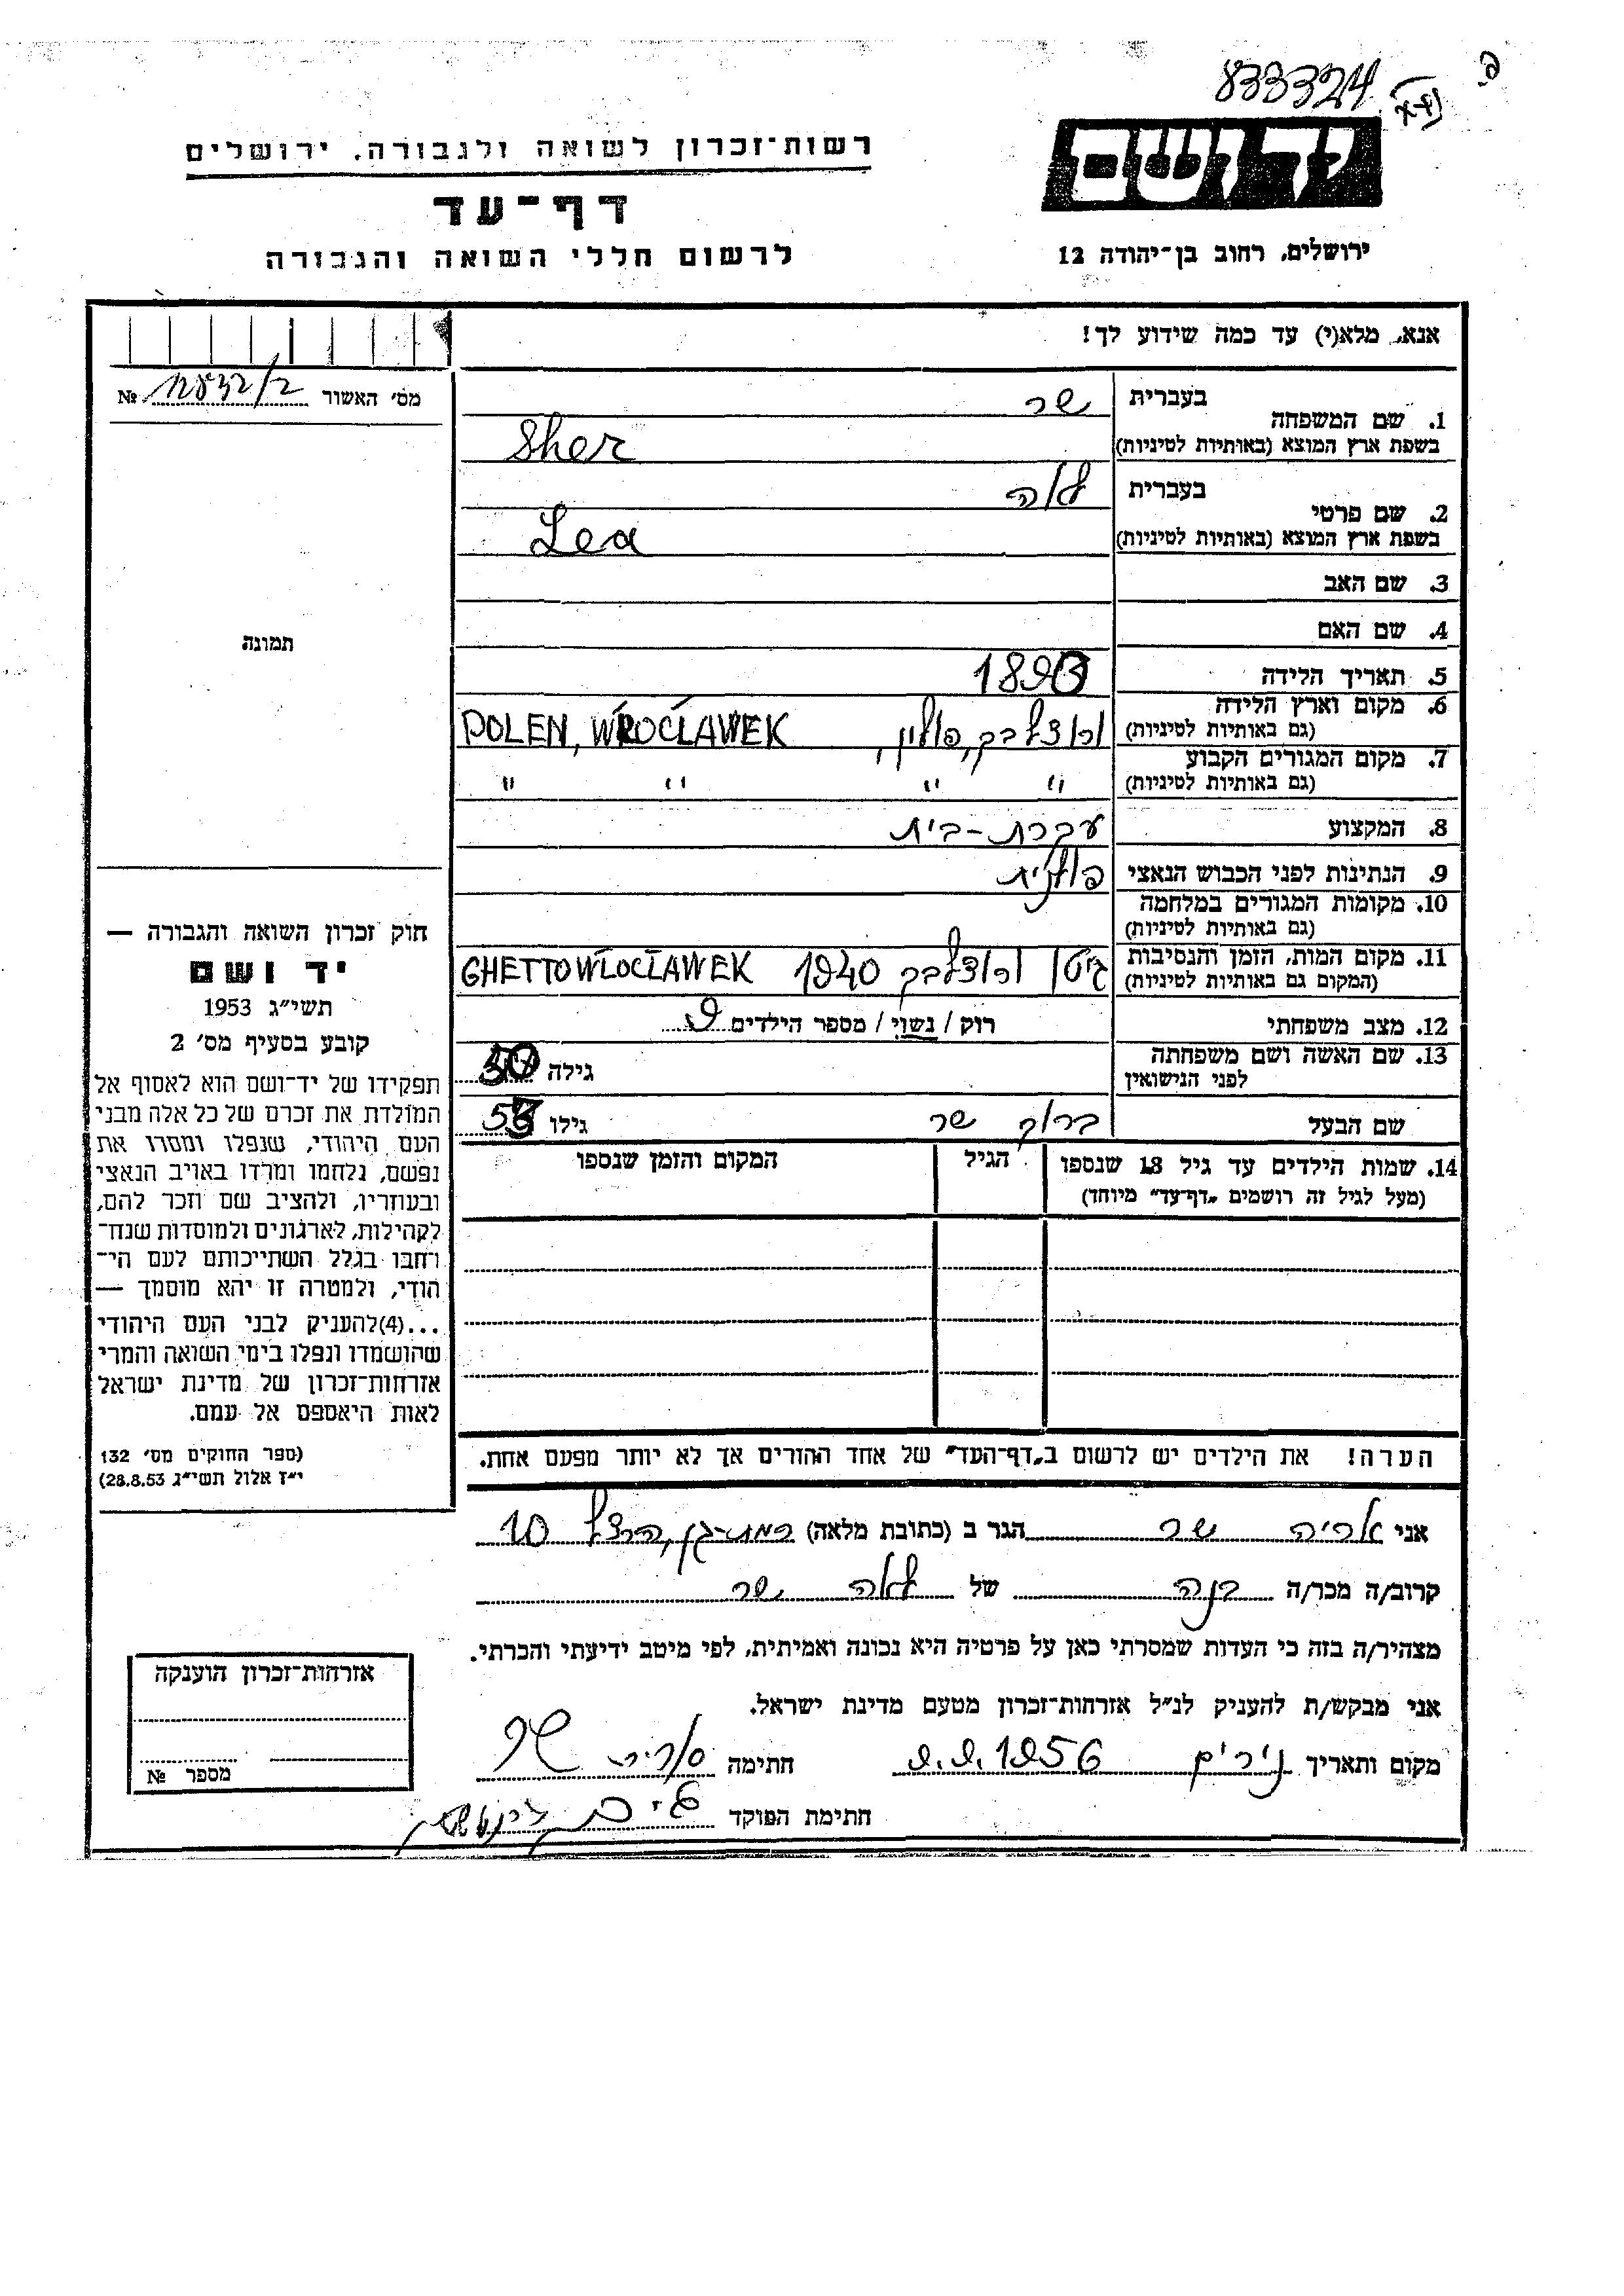 833324
יד ושם
רשות-זכרון לשואה ולגבורה, ירושלים
דף-עד
לרשום חללי השואה והגבורה
ירושלים, רחוב בן-יהודה 12
אנא, מלא(י) עד כמה שידוע לך!
מס' האשור № 12832/2
1. שם המשפחה
בעברית שר
בשפת ארץ המוצא (באותיות לטיניות) Sher
2. שם פרטי
בעברית לאה
בשפת ארץ המוצא (באותיות לטיניות) Lea
3. שם האב
4. שם האם
תמונה
5. תאריך הלידה 1890
6. מקום וארץ הלידה
(גם באותיות לטיניות) ולוצלבק, פולין, POLEN, WROCŁAWEK
7. מקום המגורים הקבוע
(גם באותיות לטיניות) " " " "
8. המקצוע עקרת-בית
9. הנתינות לפני הכבוש הנאצי פולנית
10. מקומות המגורים במלחמה
(גם באותיות לטיניות)
11. מקום המות, הזמן והנסיבות
(המקום גם באותיות לטיניות) גיטו ולוצלבק 1940 GHETTO WŁOCŁAWEK
12. מצב משפחתי רוק / נשוי / מספר הילדים 9
13. שם האשה ושם משפחתה
לפני הנישואין גילה 50
שם הבעל ברוך שר גילו 53
14. שמות הילדים עד גיל 18 שנספו
(מעל לגיל זה רושמים "דף-עד" מיוחד)
הגיל
המקום והזמן שנספו
הערה! את הילדים יש לרשום ב"דף-העד" של אחד ההורים אך לא יותר מפעם אחת.
חוק זכרון השואה והגבורה —
יד ושם
תשי"ג 1953
קובע בסעיף מס' 2
תפקידו של יד-ושם הוא לאסוף אל
המולדת את זכרם של כל אלה מבני
העם היהודי, שנפלו ומסרו את
נפשם, נלחמו ומרדו באויב הנאצי
ובעוזריו, ולהציב שם וזכר להם,
לקהילות, לארגונים ולמוסדות שנח-
רחבו בגלל השתייכותם לעם הי-
הודי, ולמטרה זו יהא מוסמך —
...(4)להעניק לבני העם היהודי
שהושמדו ונפלו בימי השואה והמרי
אזרחות-זכרון של מדינת ישראל
לאות היאספם אל עמם.
(ספר החוקים מס' 132
י"ז אלול תשי"ג 28.8.53)
אני אריה שר הגר ב (כתובת מלאה) רמת-גן, הרצל 10
קרוב/ה מכר/ה בנה של לאה שר
מצהיר/ה בזה כי העדות שמסרתי כאן על פרטיה היא נכונה ואמיתית, לפי מיטב ידיעתי והכרתי.
אני מבקש/ת להעניק לנ"ל אזרחות-זכרון מטעם מדינת ישראל.
מקום ותאריך נירים 9.9.1956 חתימה אריה שר
חתימת הפוקד
אזרחות-זכרון הוענקה
מספר №